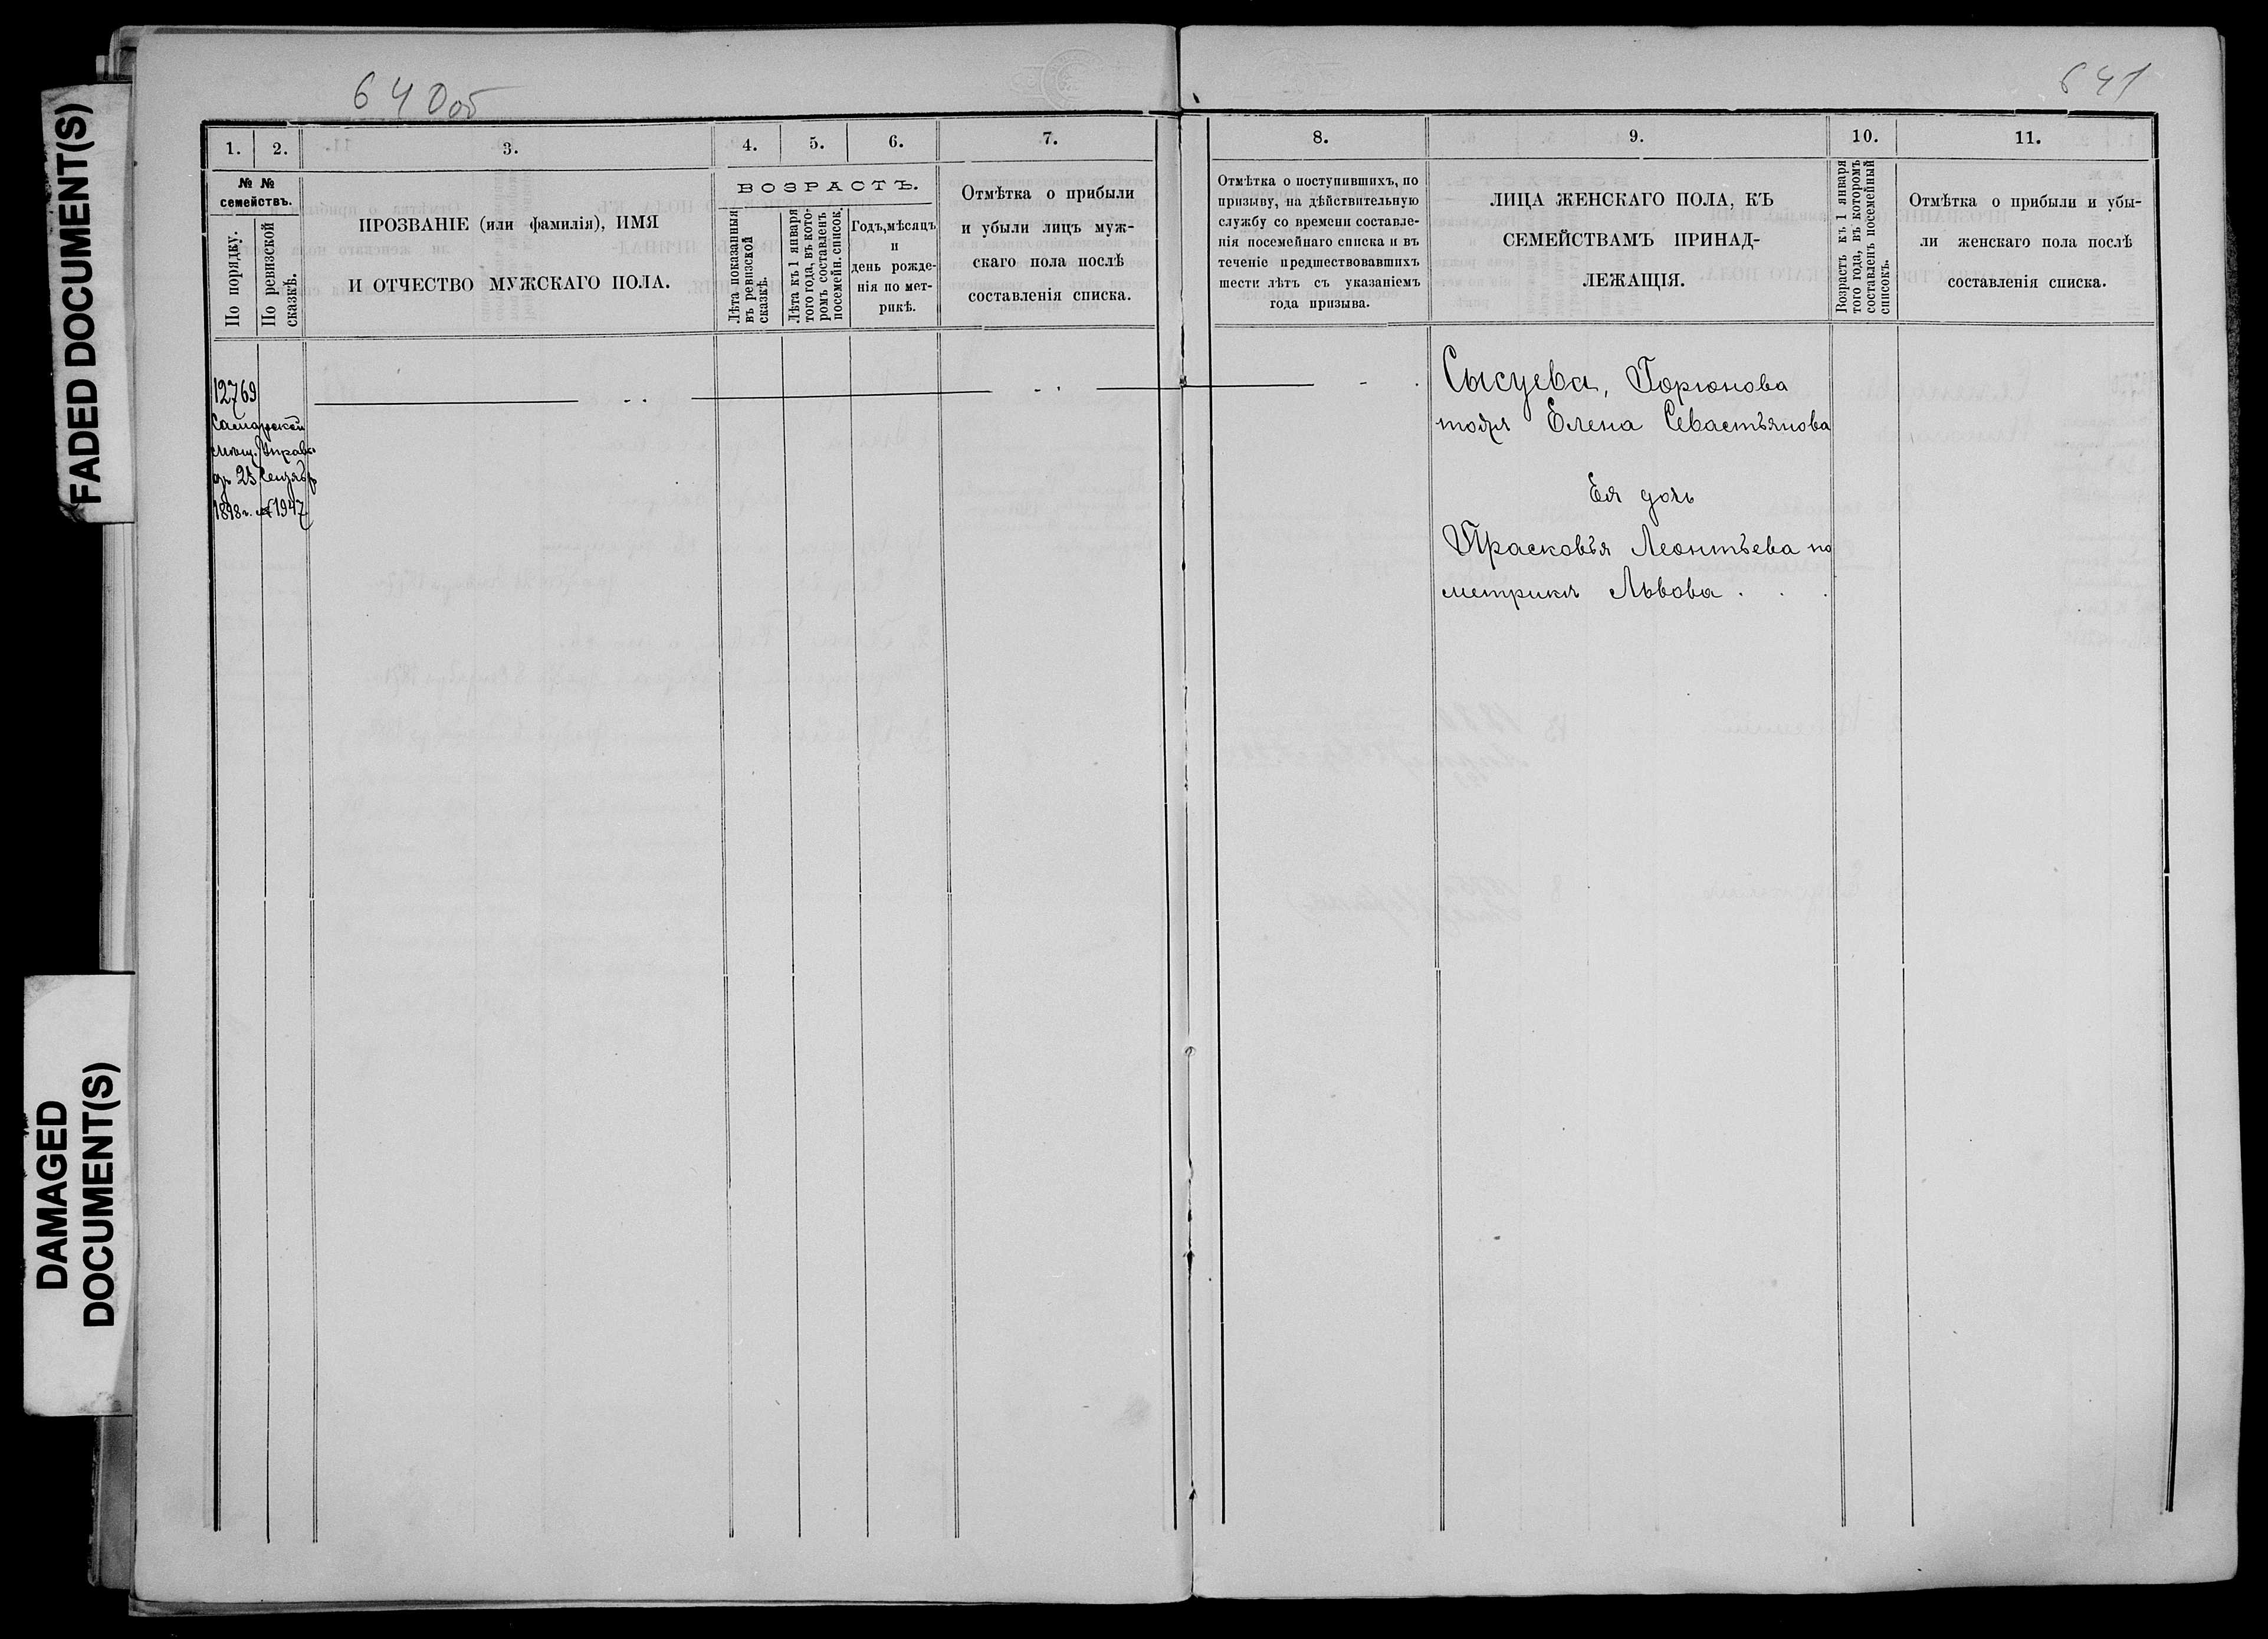 FADED DOCUMENT(S)
DAMAGED
DOCUMENT(S)
640об
1. 2. 3. 4. 5. 6. 7.
№ №
семействъ.
По порядку.
По ревизской
сказкѣ.
ПРОЗВАНІЕ (или фамилія), ИМЯ
И ОТЧЕСТВО МУЖСКАГО ПОЛА.
ВОЗРАСТЪ.
Лѣта показанныя
въ ревизской
сказкѣ.
Лѣта къ 1 января
того года, въ кото-
ромъ составленъ
посемейн. список.
Годъ, мѣсяцъ
и
день рожде-
нія по мет-
рикѣ.
Отмѣтка о прибыли
и убыли лицъ муж-
скаго пола послѣ
составленія списка.
12769
Самарской
мѣщ. Управы
23
1898 г. № 1947
641
8. 9. 10. 11.
Отмѣтка о поступившихъ, по
призыву, на дѣйствительную
службу со времени составле-
нія посемейнаго списка и въ
теченіе предшествовавшихъ
шести лѣтъ съ указаніемъ
года призыва.
ЛИЦА ЖЕНСКАГО ПОЛА, КЪ
СЕМЕЙСТВАМЪ ПРИНАД-
ЛЕЖАЩІЯ.
Возрастъ къ 1 января
того года, въ которомъ
составленъ посемейный
списокъ.
Отмѣтка о прибыли и убы-
ли женскаго пола послѣ
составленія списка.
Сысуева, Горюнова
тожъ Елена Севастьянова
Ея дочь
Прасковья Леонтьева по
метрикѣ Львова . . .